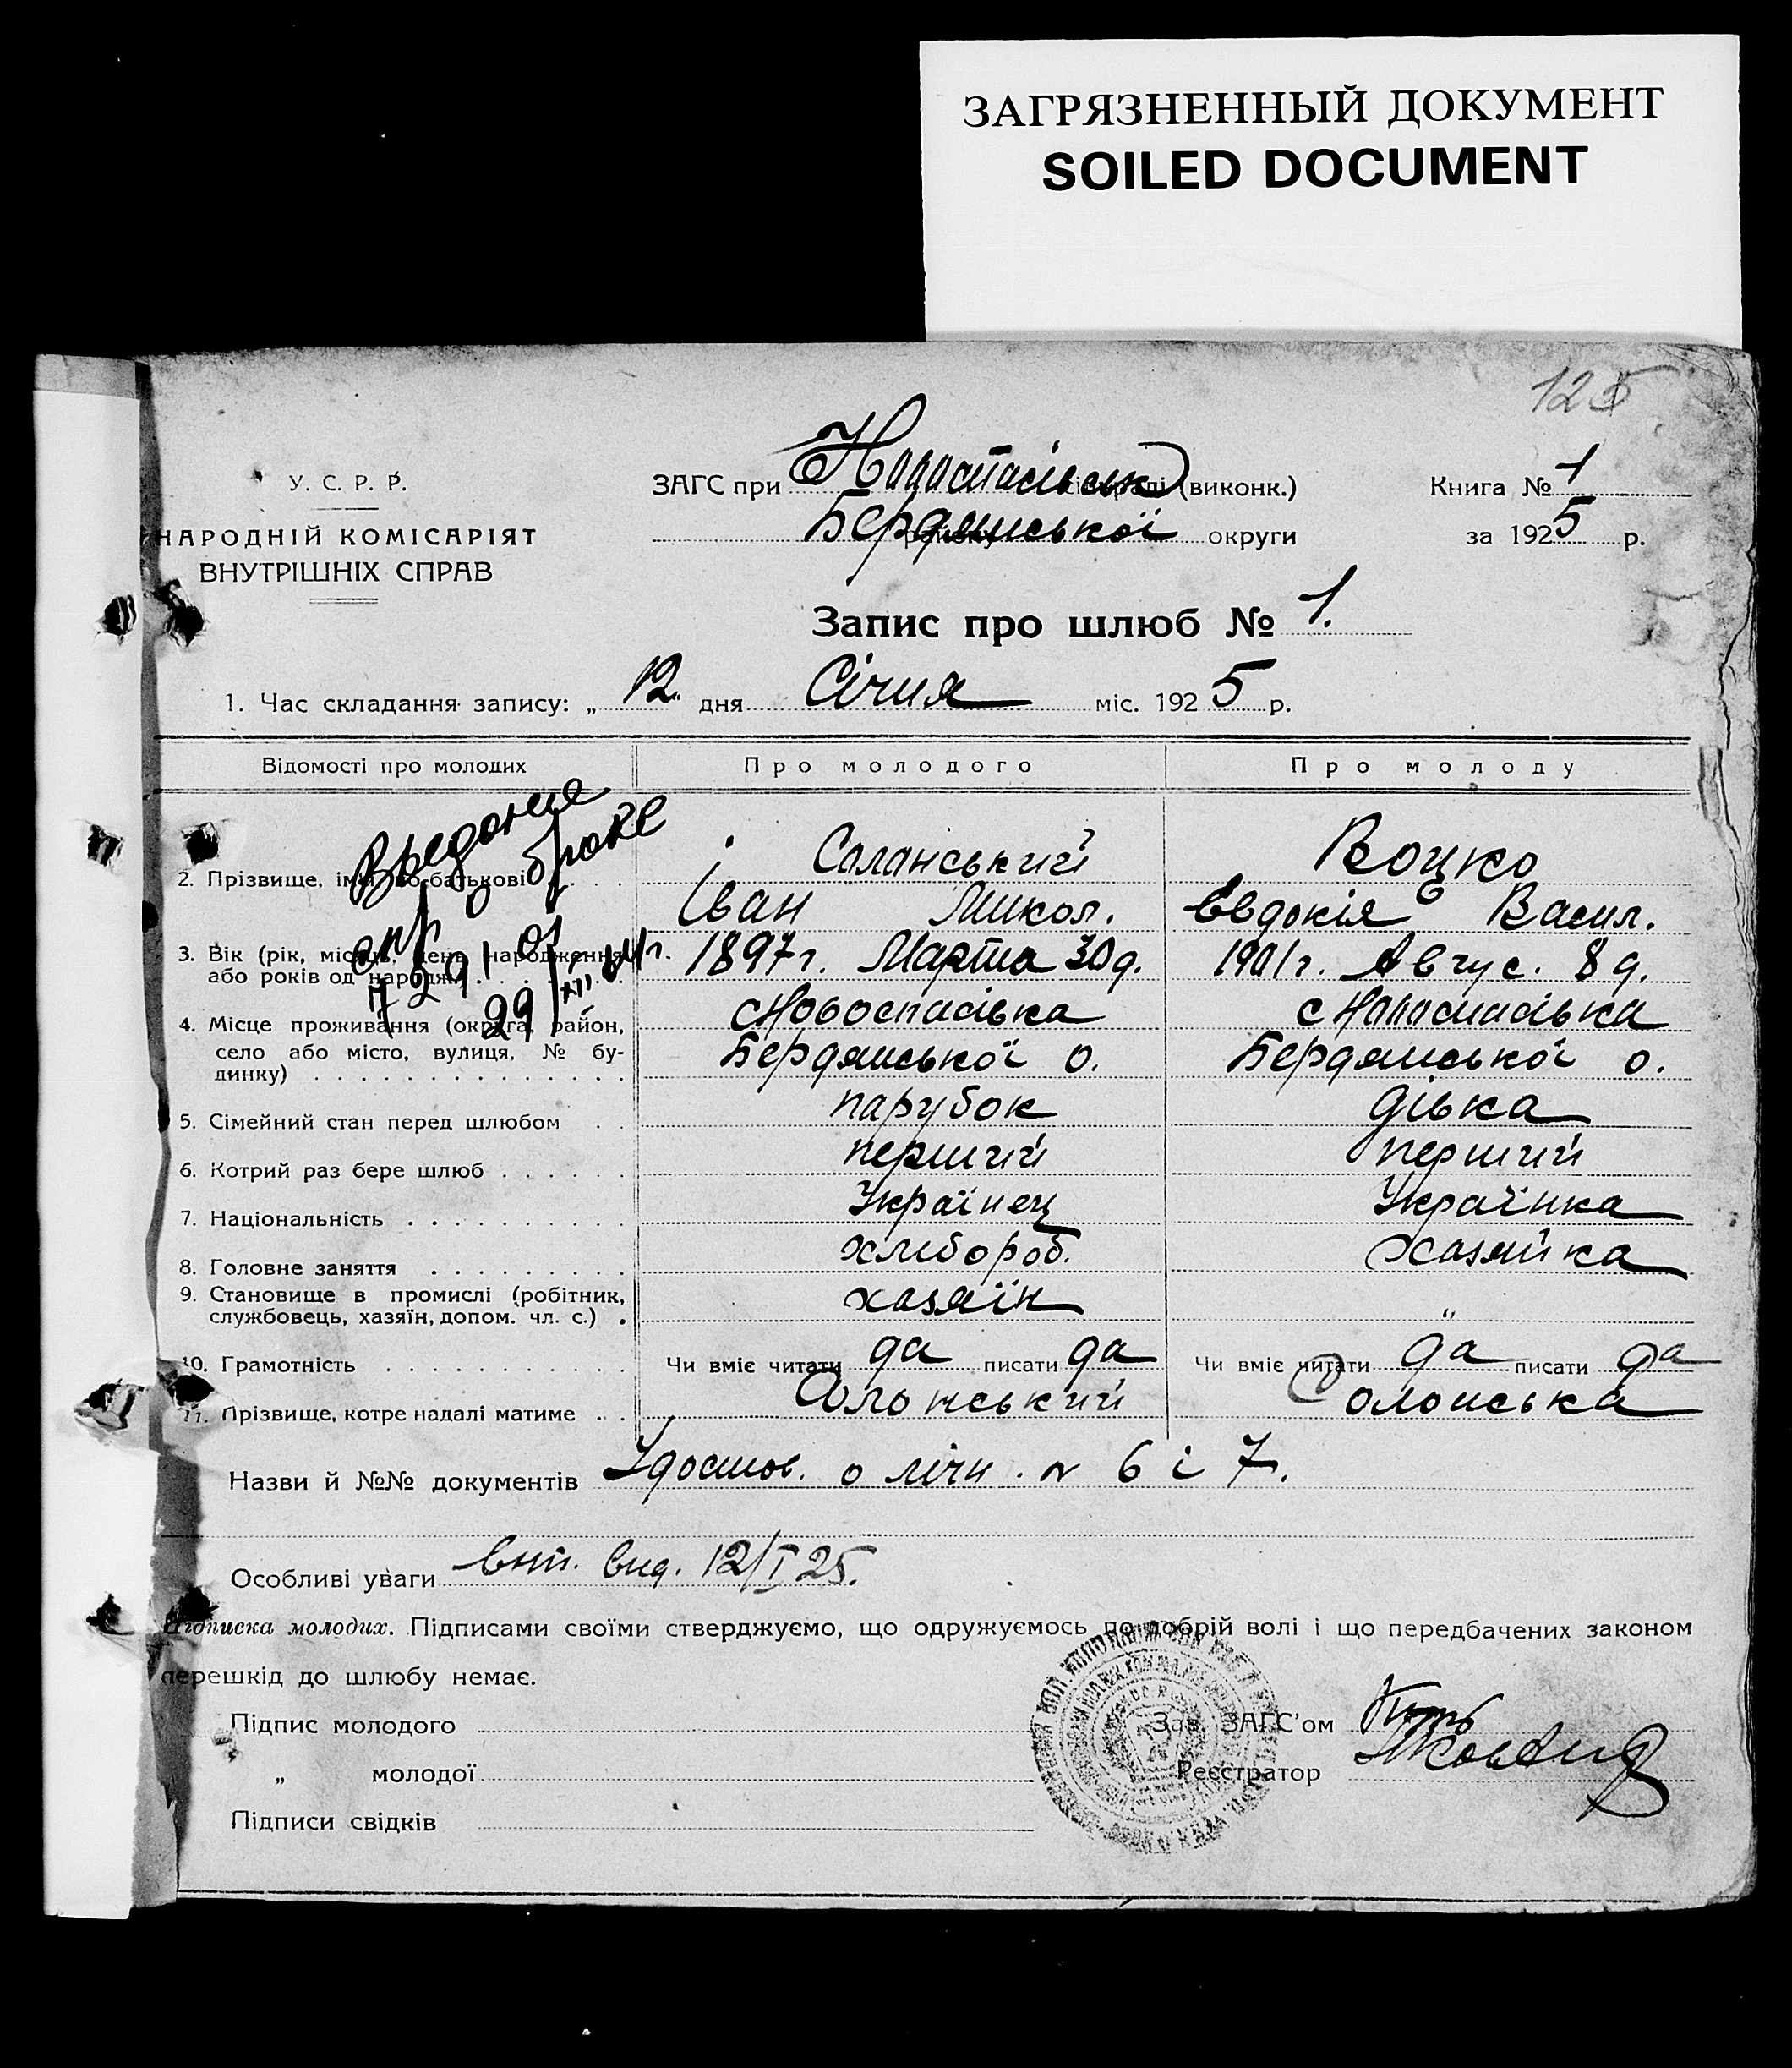 ЗАГРЯЗНЕННЫЙ ДОКУМЕНТ
SOILED DOCUMENT
125
У. С. Р. Р.
НАРОДНІЙ КОМІСАРІЯТ
ВНУТРІШНІХ СПРАВ
ЗАГС при сільраді (виконк.)
району Бердянської округи
Книга № 1
за 1925 р.
Запис про шлюб № 1.
1. Час складання запису: „ 12 " дня Січня міс. 1925 р.
Відомості про молодих Про молодого Про молоду
2. Прізвище, імя по-батькові Саланський Воцко
Іван Микол. Евдокія Васил.
3. Вік (рік, місяць, день народження 1897 г. Марта 30 д. 1901 г. Авгус. 8 д.
або років од народж.)
4. Місце проживання (округа, район, с Новоспасівка с Новоспасівка
село або місто, вулиця, № бу- Бердянської о. Бердянської о.
динку)
5. Сімейний стан перед шлюбом парубок дівка
6. Котрий раз бере шлюб перший перший
7. Національність Українец Українка
8. Головне заняття хлибороб. хазяйка
9. Становище в промислі (робітник, хазяїн "
службовець, хазяїн, допом. чл. с.)
10. Грамотність Чи вміє читати да писати да Чи вміє читати да писати да
11. Прізвище, котре надалі матиме Солонський Солонська
о браке
7291 от
29/XII
Назви й №№ документів Удостов. о лічн. № 6 і 7.
Особливі уваги вит. вид. 12/I 25.
Підписка молодих. Підписами своїми стверджуємо, що одружуємось по добрій волі і що передбачених законом
перешкід до шлюбу немає.
Підпис молодого
Зав. ЗАГС'ом
„ молодої
Реєстратор
Підписи свідків